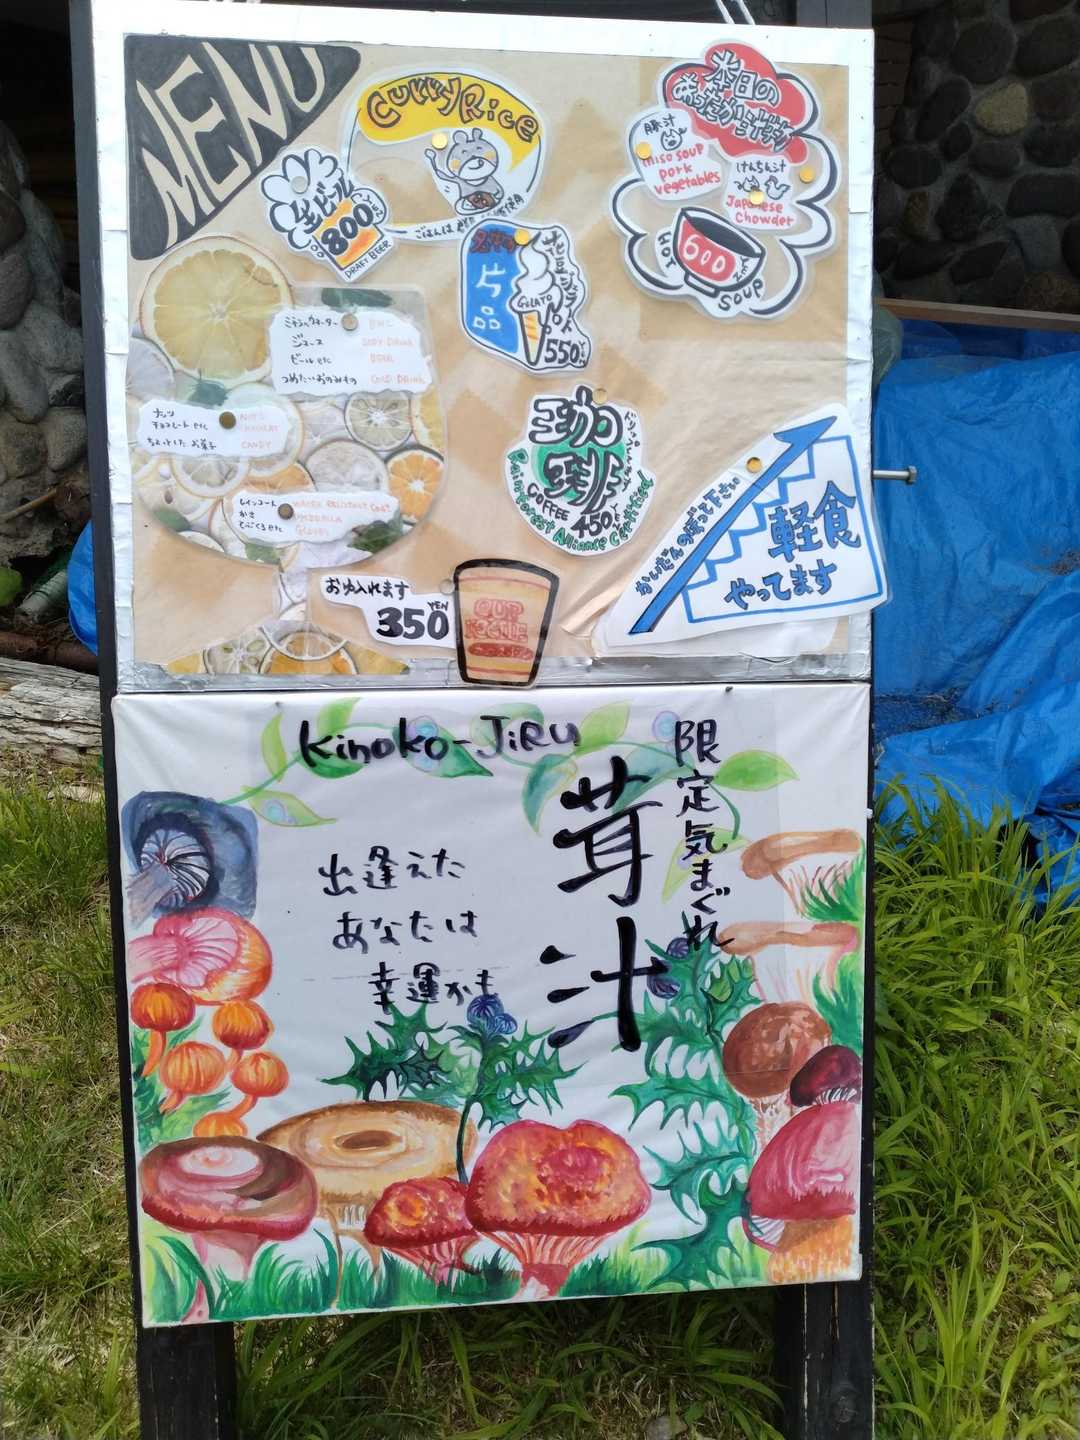 MENU
Curry Rice
ごはんは
生ビール
800
DRAFT BEER
本日の
あったか汁物
豚汁
miso soup
pork
vegetables
けんちん汁
Japanese
Chowder
HOT
600
YEN
SOUP
片品
GELATO
550
ミネラルウォーター
ジュース
ビール etc
BEER
つめたいおのみもの
COLD DRINK
ナッツ
チョコレート etc
ちょっとした お菓子
CANDY
レインコート
かさ
てぶくろ etc
WATER RESISTANT COAT
UMBRELLA
GLOVES
珈琲
COFFEE
450
Rainforest Alliance Certified
かいだんのぼって下さい
軽食
やってます
お湯入れます
350
YEN
CUP
NOODLE
Kinoko-JiRu
限定気まぐれ
茸汁
出逢えた
あなたは
幸運かも